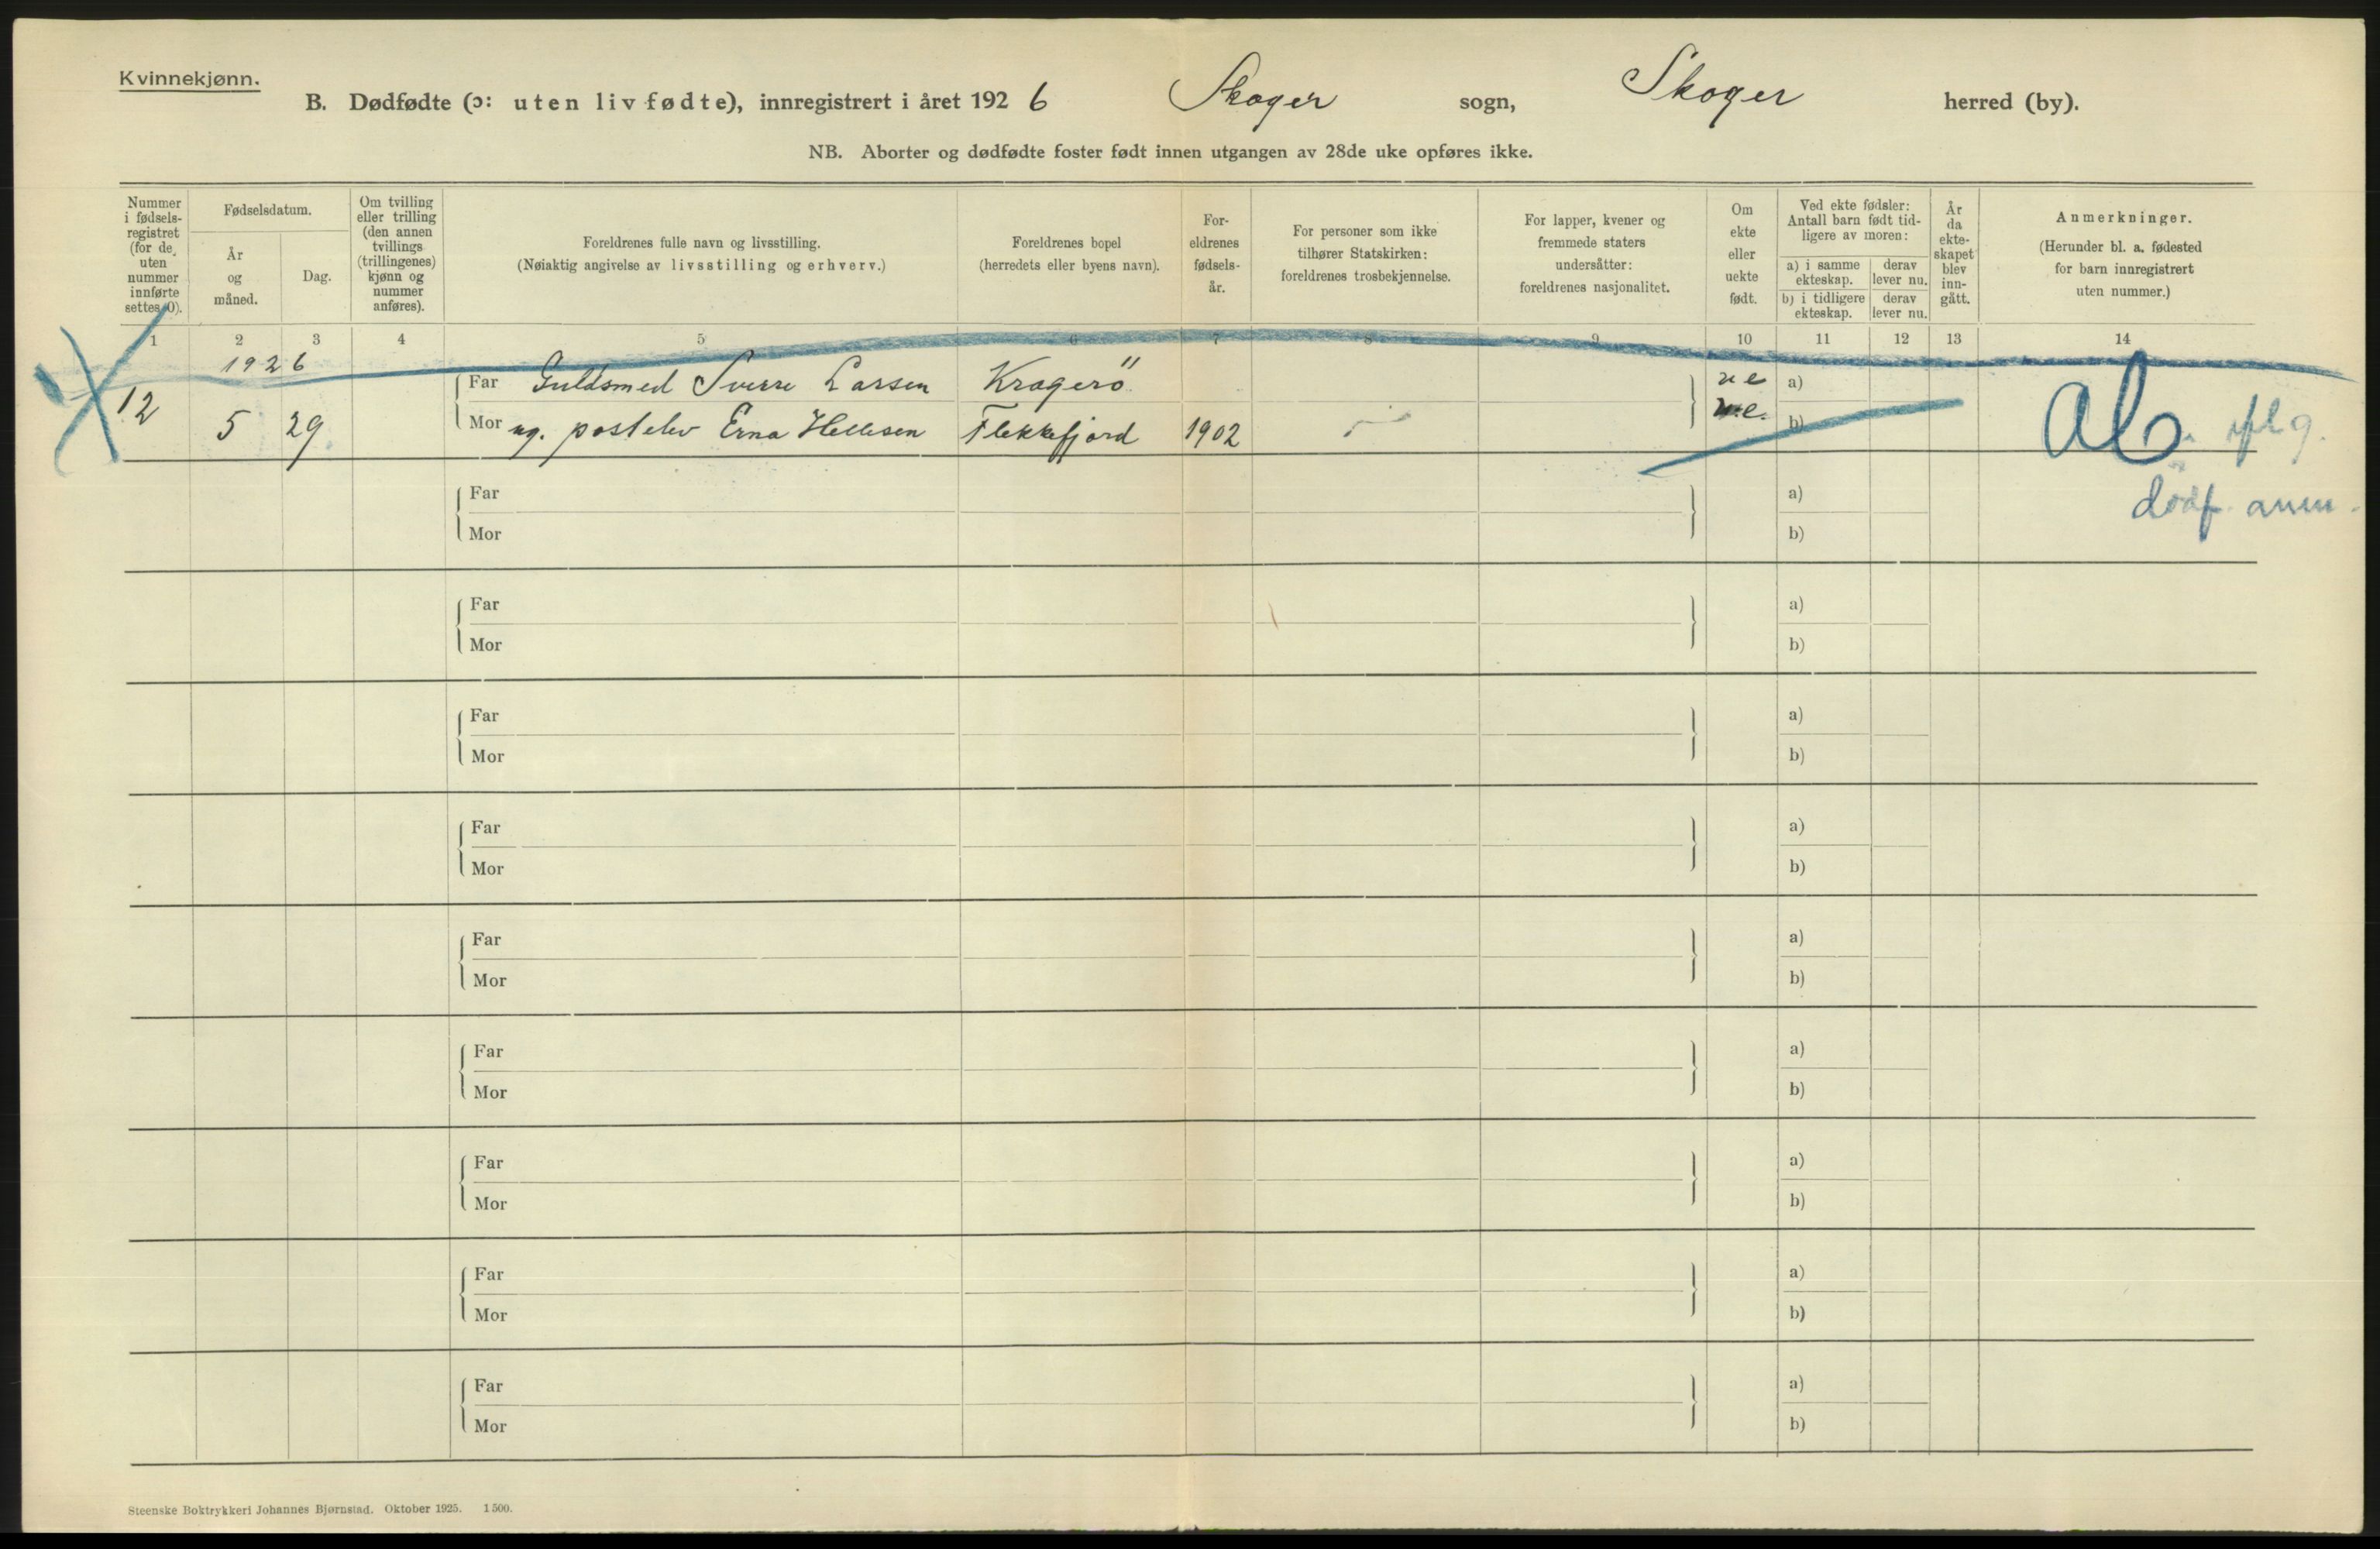 Kvinnekjønn.
B. Dødfødte (ɔ: uten liv fødte), innregistrert i året 1926 Skoger sogn, Skoger herred (by).
NB. Aborter og dødfødte foster født innen utgangen av 28de uke opføres ikke.
Nummer i fødsels-registret (for de uten nummer innførte settes 0).
Fødselsdatum.
År og måned.
Dag.
Om tvilling eller trilling (den annen tvillings (trillingenes) kjønn og nummer anføres).
Foreldrenes fulle navn og livsstilling.
(Nøiaktig angivelse av livsstilling og erhverv.)
Foreldrenes bopel
(herredets eller byens navn).
For-eldrenes fødsels-år.
For personer som ikke tilhører Statskirken: foreldrenes trosbekjennelse.
For lapper, kvener og fremmede staters undersåtter: foreldrenes nasjonalitet.
Om ekte eller uekte født.
Ved ekte fødsler: Antall barn født tid-ligere av moren:
a) i samme ekteskap. derav lever nu.
b) i tidligere ekteskap. derav lever nu.
År da ekte-skapet blev inn-gått.
Anmerkninger.
(Herunder bl. a. fødested for barn innregistrert uten nummer.)
1 2 3 4 5 6 7 8 9 10 11 12 13 14
1926
Far Guldsmed Sverre Larsen Kragerö ue a)
12 5 29. Mor ug. postelev Erna Hellesen Flekkefjord 1902 u.e. b) Ab. iflg.
dödf. anm.
Far a)
Mor b)
Far a)
Mor b)
Far a)
Mor b)
Far a)
Mor b)
Far a)
Mor b)
Far a)
Mor b)
Far a)
Mor b)
Far a)
Mor b)
Far a)
Mor b)
Steenske Boktrykkeri Johannes Bjørnstad. Oktober 1925. 1500.